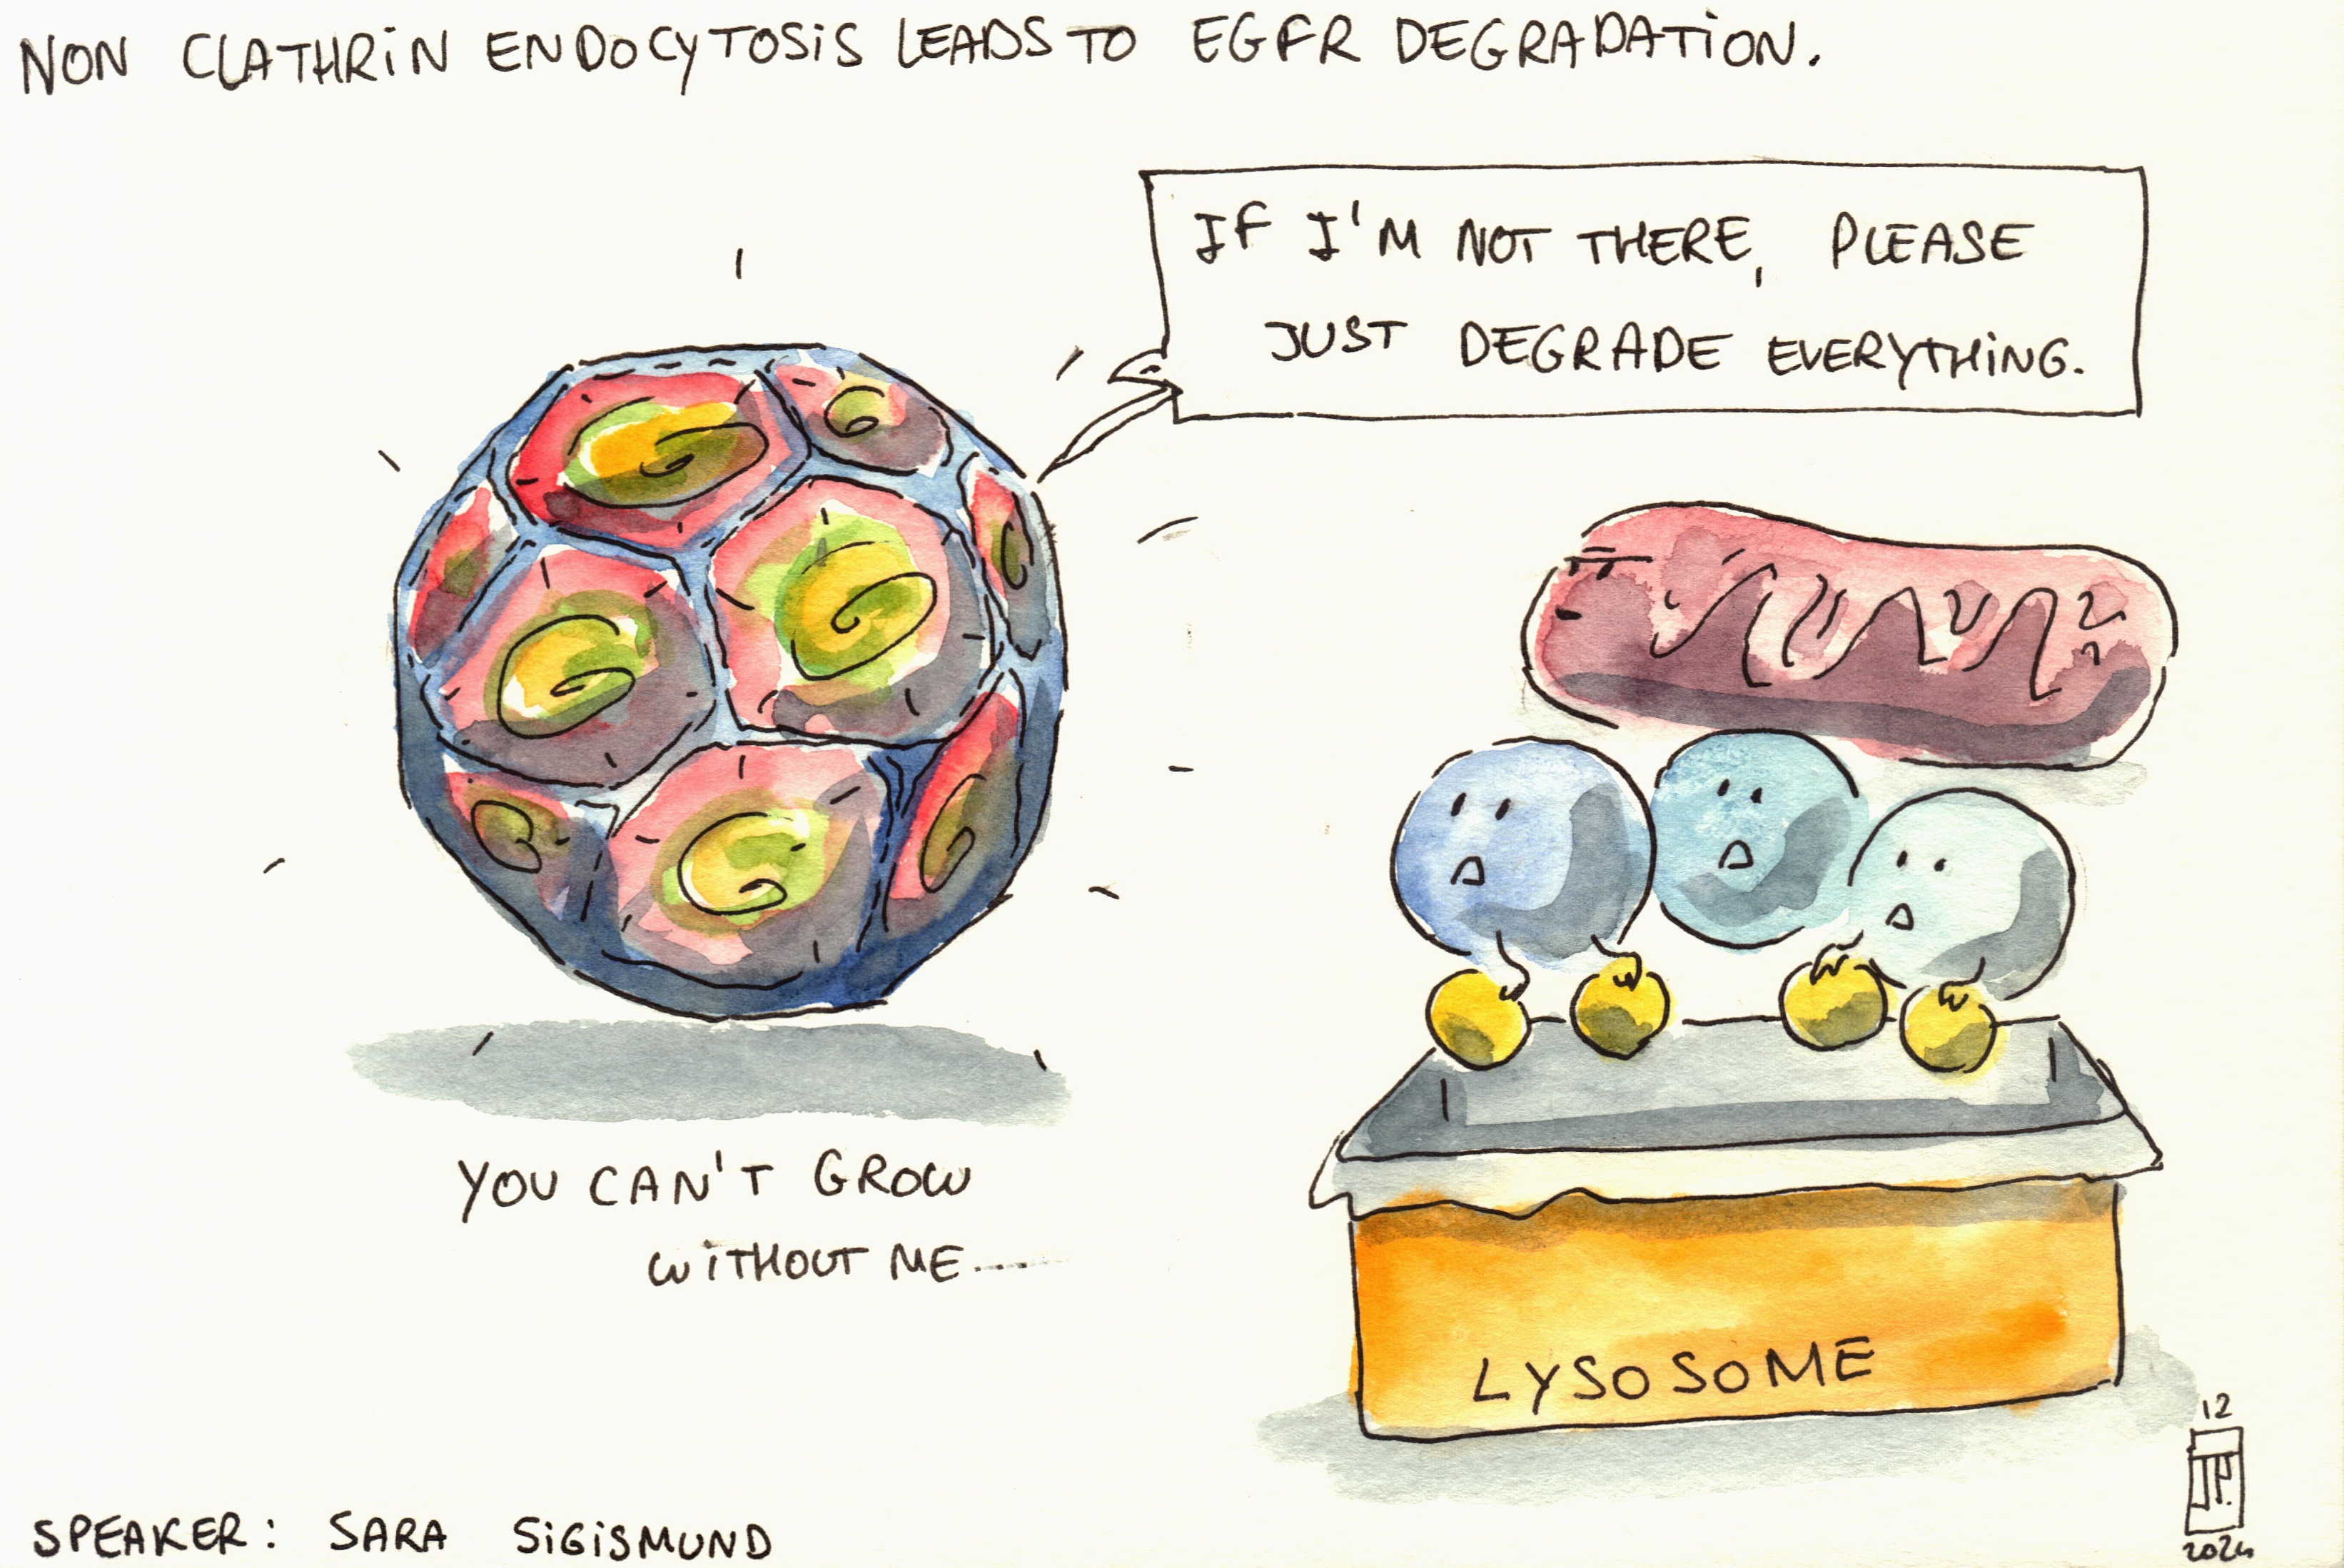 NON CLATHRIN ENDOCYTOSIS LEADS TO EGFR DEGRADATION.
IF I'M NOT THERE, PLEASE
JUST DEGRADE EVERYTHING.
YOU CAN'T GROW
WITHOUT ME......
LYSOSOME
SPEAKER: SARA SIGISMUND
12